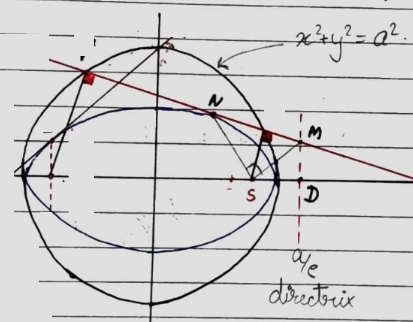 x²+y²=a².
N
M
S
D
a/e
directrix